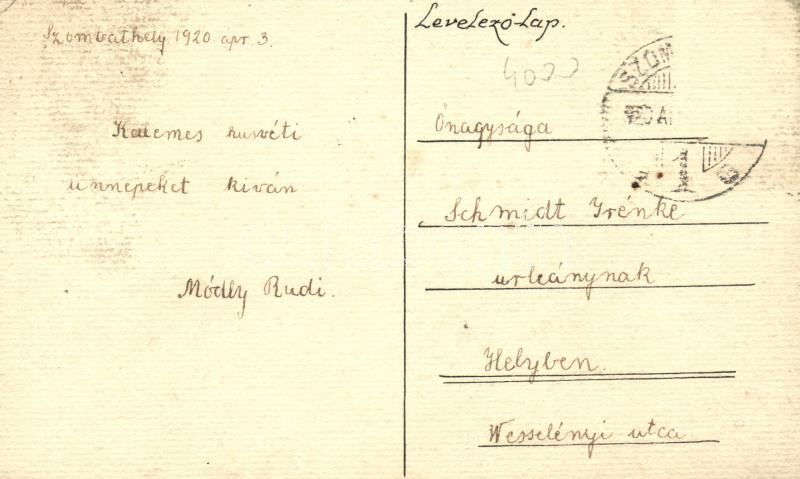 Szombathely 1920. apr. 3.
Kelemes husvéti
ünnepeket kiván
Módly Rudi.
Levelező-Lap.
4000
Önagysága
Schmidt Irénke
urleánynak
Helyben.
Wesselényi utca
SZOM